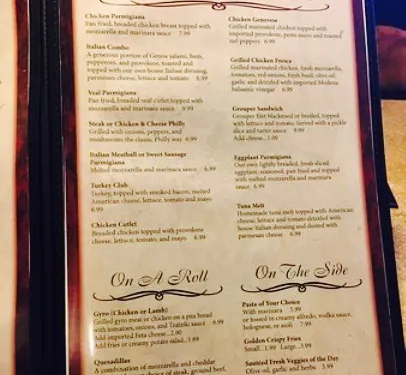 Chicken Parmigiana
Pan fried, breaded chicken breast topped with
mozzarella and marinara sauce 7.99
Italian Combo
A generous portion of Genoa salami, ham,
pepperoni, and provolone, toasted and
topped with our own house Italian dressing,
parmesan cheese, lettuce and tomato
Veal Parmigiana
Pan fried, breaded veal cutlet topped with
mozzarella and marinara sauce
Steak or Chicken & Cheese Philly
Grilled with onions, peppers, and
mushrooms the classic Philly way 6.99
Italian Meatball or Sweet Sausage
Parmigiana
Melted mozzarella and marinara sauce 6.99
Turkey Club
Turkey, topped with smoked bacon, melted
American cheese, lettuce, tomato and mayo
6.99
Chicken Cutlet
Breaded chicken topped with provolone
cheese, lettuce, tomato, and mayo 5.99
On A Roll
Gyro (Chicken or Lamb)
Grilled gyro meat or chicken on a pita bread
with tomatoes, onions, and Tzatziki sauce 6.99
Add imported Feta cheese...2.00
Add fries or creamy potato salad...1.69
Quesadillas
A combination of mozzarella and cheddar
of steak, ground beef,
Chicken Genovese
Grilled marinated chicken topped with
imported provolone, pesto sauce and roasted
red peppers 6.99
Grilled Chicken Fresca
Grilled marinated chicken, fresh mozzarella,
tomatoes, red onions, fresh basil, olive oil,
garlic and drizzled with imported Modena
balsamic vinegar 6.99
Grouper Sandwich
Grouper filet blackened or broiled, topped
with lettuce and tomato. Served with a pickle
slice and tarter sauce 9.99
Add cheese..1.00
Eggplant Parmigiana
Our own lightly breaded, fresh sliced
eggplant, seasoned, pan fried and topped
with melted mozzarella and marinara
sauce 6.99
Tuna Melt
Homemade tuna melt topped with American
cheese, lettuce and tomato drizzled with
house Italian dressing and dusted with
parmesan cheese 6.99
On The Side
Pasta of Your Choice
With marinara 3.99
or tossed in creamy alfredo, vodka sauce,
bolognese, or aioli 7.99
Golden Crispy Fries
Small..1.99 Large...3.99
Sauteed Fresh Veggies of the Day
Olive oil, garlic and herbs 3.99